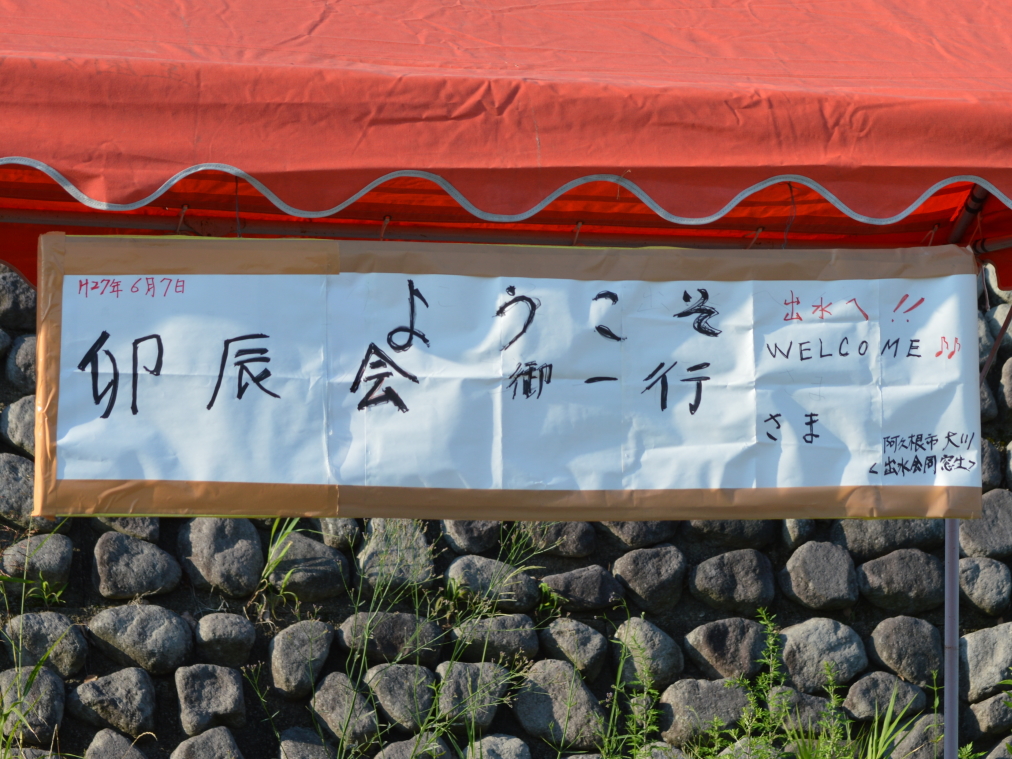 H27年6月7日
ようこそ
出水へ!!
WELCOME ♪♪
卯辰会御一行
さま
阿久根市大川
<出水会同窓生>